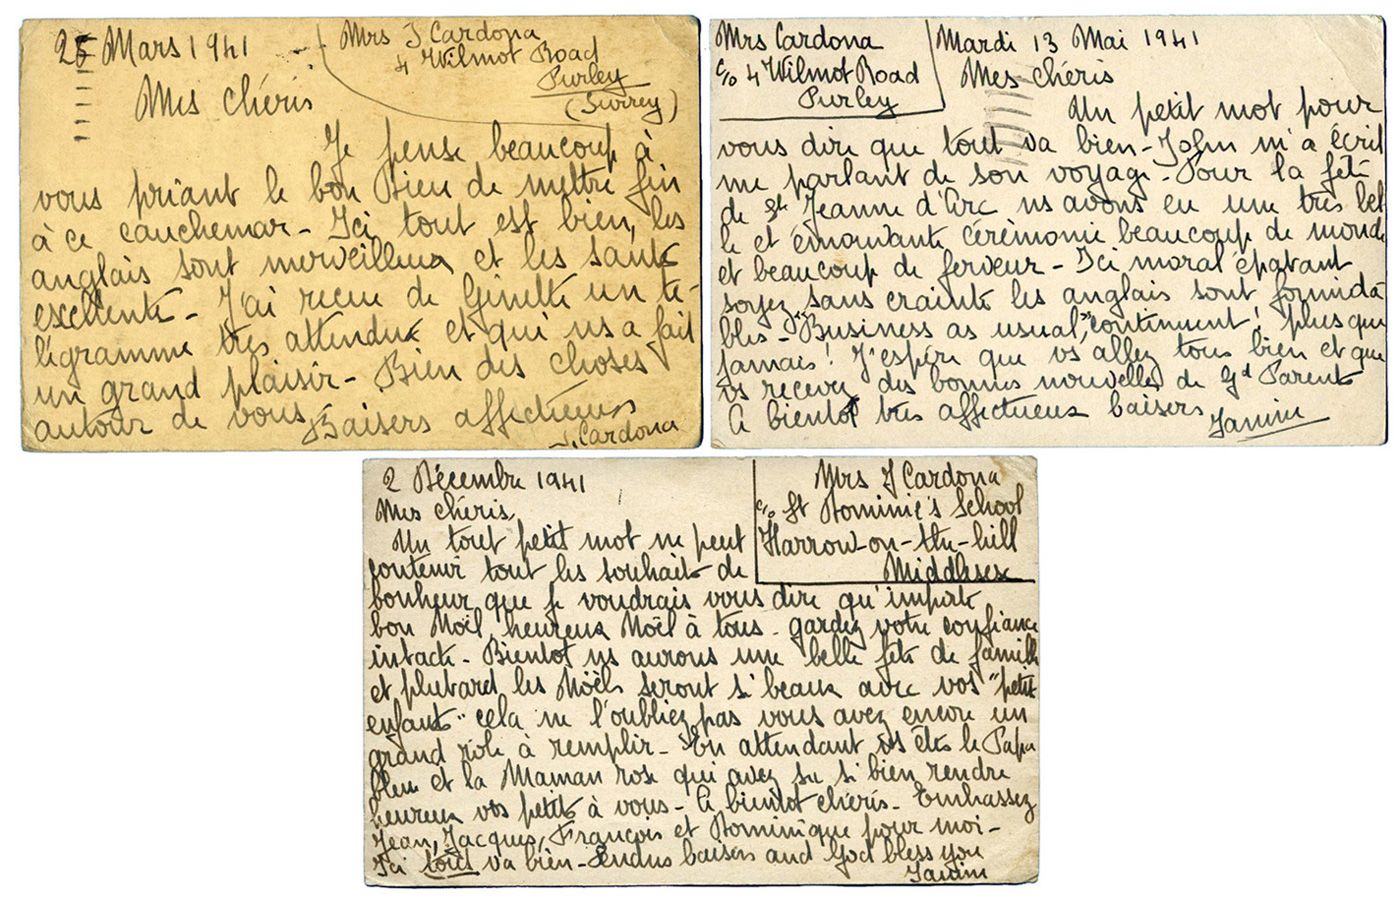 25 Mars 1941
Mrs J Cardona
4 Wilmot Road
Purley
(Surrey)
Mes chéris
Je pense beaucoup à
vous priant le bon Dieu de mettre fin
à ce cauchemar - Ici tout est bien, les
anglais sont merveilleux et les santés
excellentes - J'ai reçue de Ginette un té-
légramme très attendue et qui ns a fait
un grand plaisir - Bien des choses
autour de vous. Baisers affectueux
J. Cardona
Mrs Cardona
c/o 4 Wilmot Road
Purley
Mardi 13 Mai 1941
Mes chéris
Un petit mot pour
vous dire que tout va bien - John m'a écrit
me parlant de son voyage - Pour la fête
de Ste Jeanne d'Arc ns avons eu une très bel
le et émouvante cérémonie beaucoup de monde
et beaucoup de ferveur - Ici moral épatant
soyez sans crainte les anglais sont formida
bles - "Business as usual," continuent! plus que
jamais! J'espère que vs allez tous bien et que
vs recevez des bonnes nouvelles de Gd Parents
A bientôt très affectueux baisers
Janine
2 Décembre 1941
Mrs J Cardona
c/o St Dominic's School
Harrow-on-the-hill
Middlesex
Mes chéris,
Un tout petit mot ne peut
contenir tout les souhaits de
bonheur que je voudrais vous dire qu'importe
bon Noël, heureux Noël à tous - gardez votre confiance
intacte - Bientôt ns aurons une belle fête de famille
et plutard les Noëls seront si beaux avec vos "petits
enfants" cela ne l'oubliez pas vous avez encore un
grand rôle à remplir - En attendant vs êtes le Papa
bleu et la Maman rose qui avez su si bien rendre
heureux vos petits à vous - A bientôt chéris - Embrassez
Jean, Jacques, François et Dominique pour moi -
Ici tout va bien - Tendres baisers and God bless you
Janine